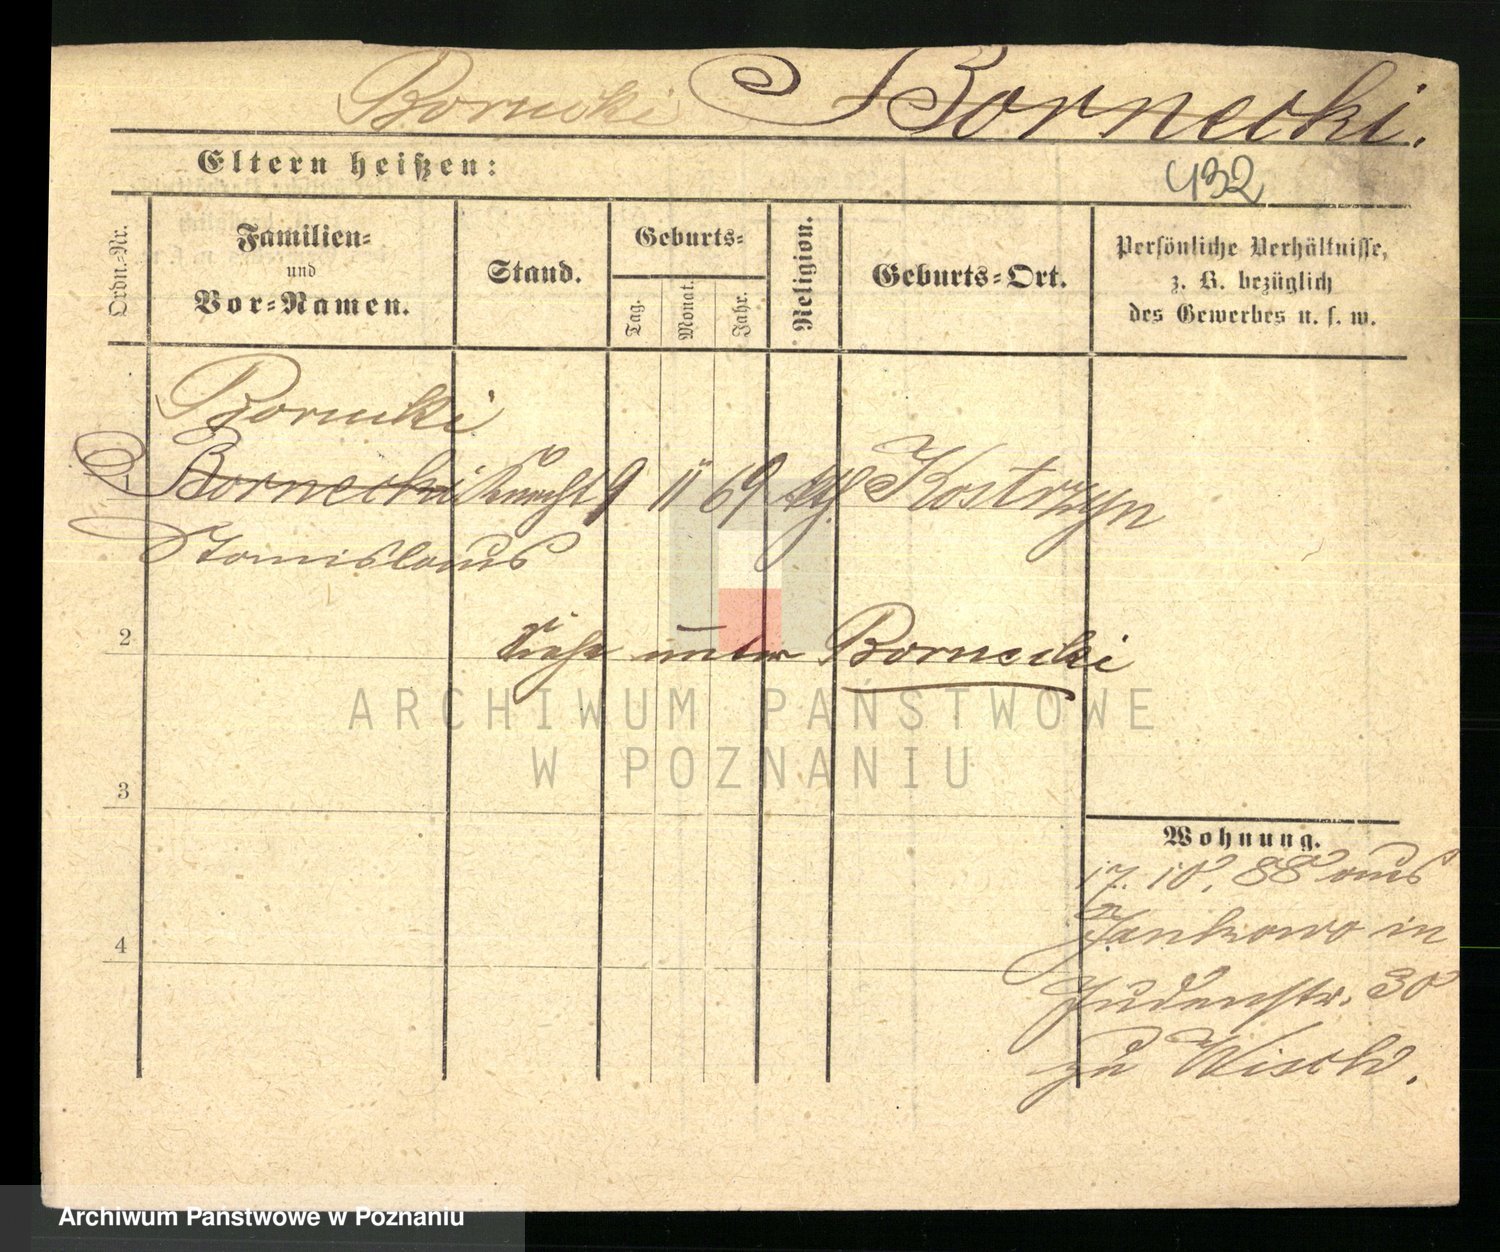 Bornecki Bornecki.
Eltern heißen:
432
Ordn.-Nr.
Familien-
und
Vor-Namen.
Stand.
Geburts-
Tag.
Monat.
Jahr.
Religion.
Geburts-Ort.
Persönliche Verhältnisse,
z. B. bezüglich
des Gewerbes u. s. w.
Bornecki
1 Bornecki Knecht 9 11 69 kath. Kostrzyn
Stanislaus
2
Siehe unter Bornecki
3
4
Wohnung.
17. 10. 88 aus
Jankowo in
Judenstr. 30
zu Wisch.
ARCHIWUM PAŃSTWOWE
W POZNANIU
Archiwum Państwowe w Poznaniu